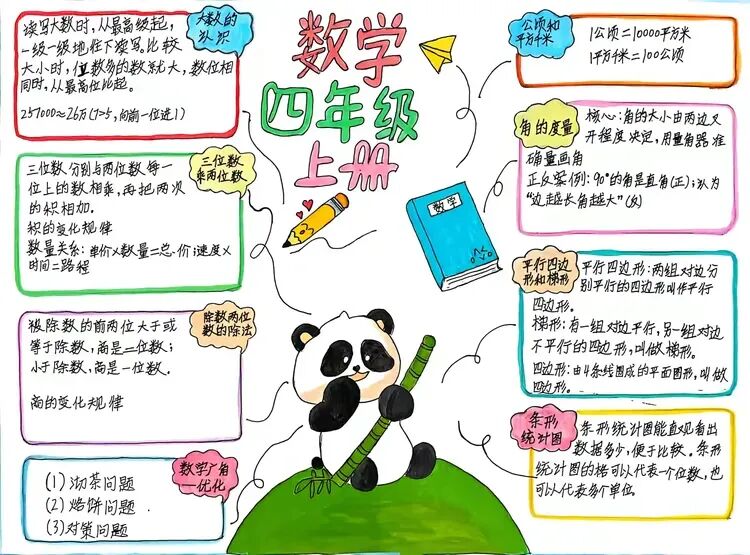 数学
四年级
上册
数学
大数的
认识
读写大数时,从最高级起,
一级一级地往下读写.比较
大小时,位数多的数就大,数位相
同时,从最高位比起。
257000≈26万(7>5,向前一位进1)
三位数
乘两位数
三位数分别与两位数每一
位上的数相乘,再把两次
的积相加.
积的变化规律
数量关系:单价×数量=总价;速度×
时间=路程
除数两位
数的除法
被除数的前两位大于或
等于除数,商是二位数;
小于除数,商是一位数.
商的变化规律
数学广角
—优化
(1)沏茶问题
(2)烙饼问题.
(3)对策问题
公顷和
平方千米
1公顷=10000平方米
1平方千米=100公顷
角的度量
核心:角的大小由两边叉
开程度决定,用量角器准
确量画角
正反案例:90°的角是直角(正);认为
“边越长角越大”(反)
平行四边
形和梯形
平行四边形:两组对边分
别平行的四边形叫作平行
四边形.
梯形:有一组对边平行,另一组对边
不平行的四边形,叫做梯形.
四边形:由4条线围成的平面图形,叫做
四边形.
条形
统计图
条形统计图能直观看出
数据多少,便于比较.条形
统计图的格可以代表一个位数,也
可以代表多个单位.